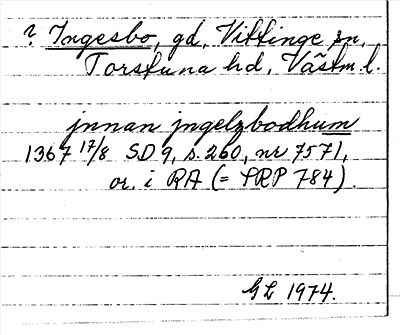 ? Ingesbo, gd, Vittinge sn,
Torstuna hd, Västm l.
jnnan jngelzbodhum
1367 17/8 SD 9, s. 260, nr 7571,
or. i RA (= PRP 784).
GL 1974.